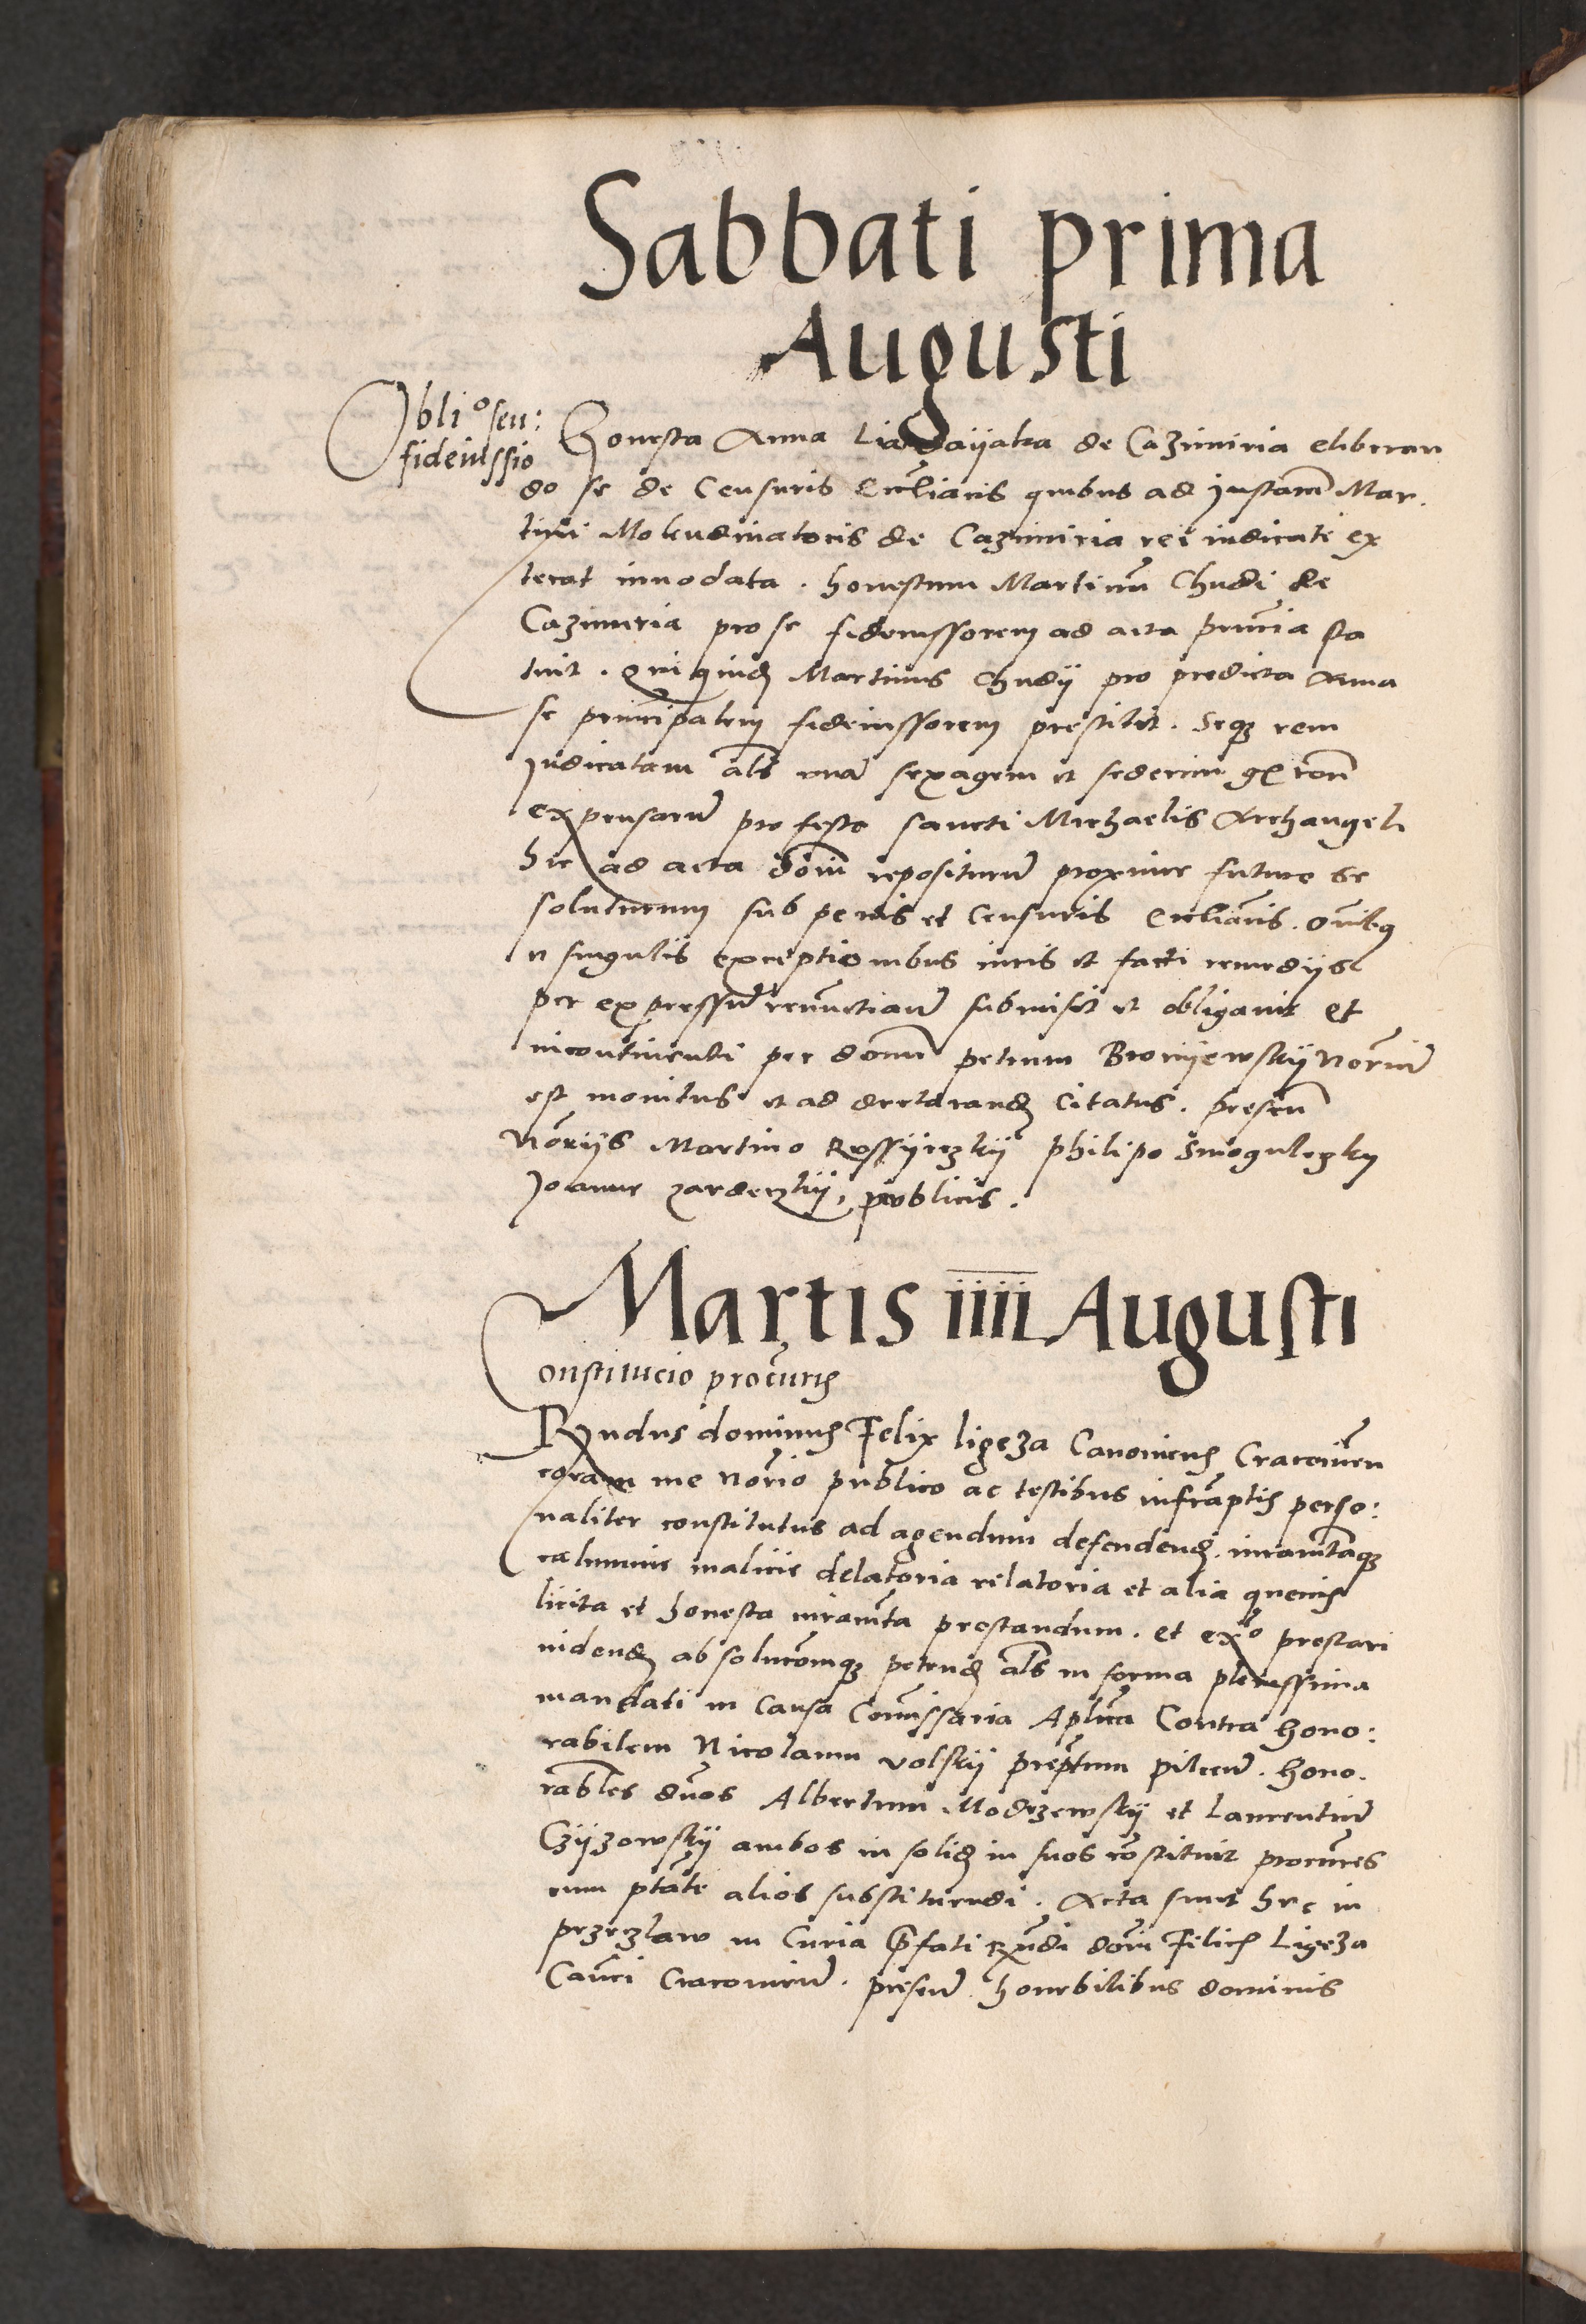 Sabbati prima
Augusti
Obli° seu:
fideiussio
Honesta Anna de Cazimiria eliberan
do se de Censuris Eccliacis quibus ad Instam Mar.
tini Molendinatoris de Cazimiria rei iudicate ex
terat innodata. honestum Martinu Chudi de
Cazimiria pro se fideiussorem ad acta pncia sta
tuit. Qui quid Martinus Chudij pro predicta Anna
se principalem fideiussorem prestitit. Seq rem
Judicatam als una sexagem et sedecim gr ron
expensaru pro festo sancti Michaelis Archangeli
hic ad acta doni repositurū proxime futuro se
soluturum sub penis et Censuris Ecclianis. oïbq
et singulis exceptionibus iuris et facti remedijs
per expressum renunctian submisit et obligavit et
incontinenti per donu petrum Bronijewskij Noriu
est monitus et ad declarand Citatus. presen
Norijs Martino philipo Smoguleczky
Joanne zardeczkij, publicis.
Martis iiii Augusti
Constitucio procuris
Rndus dominus Felix ligeza Canonicus Cracovien
coram me norio publico ac testibus infraptis perso:
naliter constitutus ad agendum defendend. iuramtaq
calumnie malicie delatoria relatoria et alia quecuq
licita et honesta iuramta prestandum. et exº prestari
videnď absolucomq petend als in forma plenissima
mandati in Causa Comissaria Aplica Contra hono:
rabilem Nicolaum volskij preptum pilceu. hono.
rables dnos Albertum Modrzewskij et Laurentiu
Czijzowskij ambos in solid in suos costituit procures
cum ptate alios substituendi. Acta sunt hec in
przeczlaw in Curia pfati Rndi doni Felicis Ligeza
Canci Cracovien. presen honrbilibus dominis